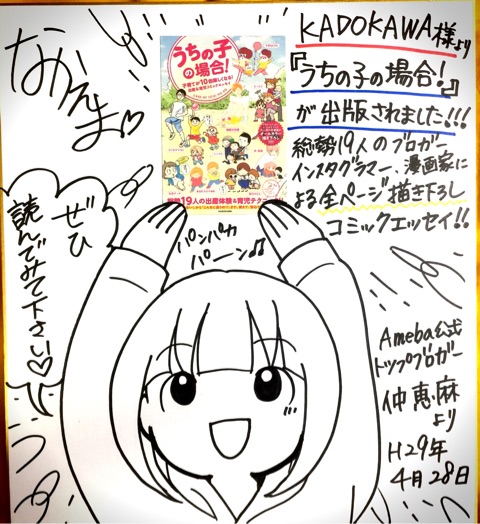 KADOKAWA様より
『うちの子の場合!』
が出版されました!!!
総勢19人のブロガー
インスタグラマー、漫画家に
よる全ページ描き下ろし
コミックエッセイ!!
うちの子
の場合!
子育てが10倍楽しくなる!
19人の出産体験&育児テクニック
パンパカ
パーン♪♪
ぜひ
読んでみて下さい♡
Ameba公式
トップブロガー
仲恵麻
より
H29年
4月28日